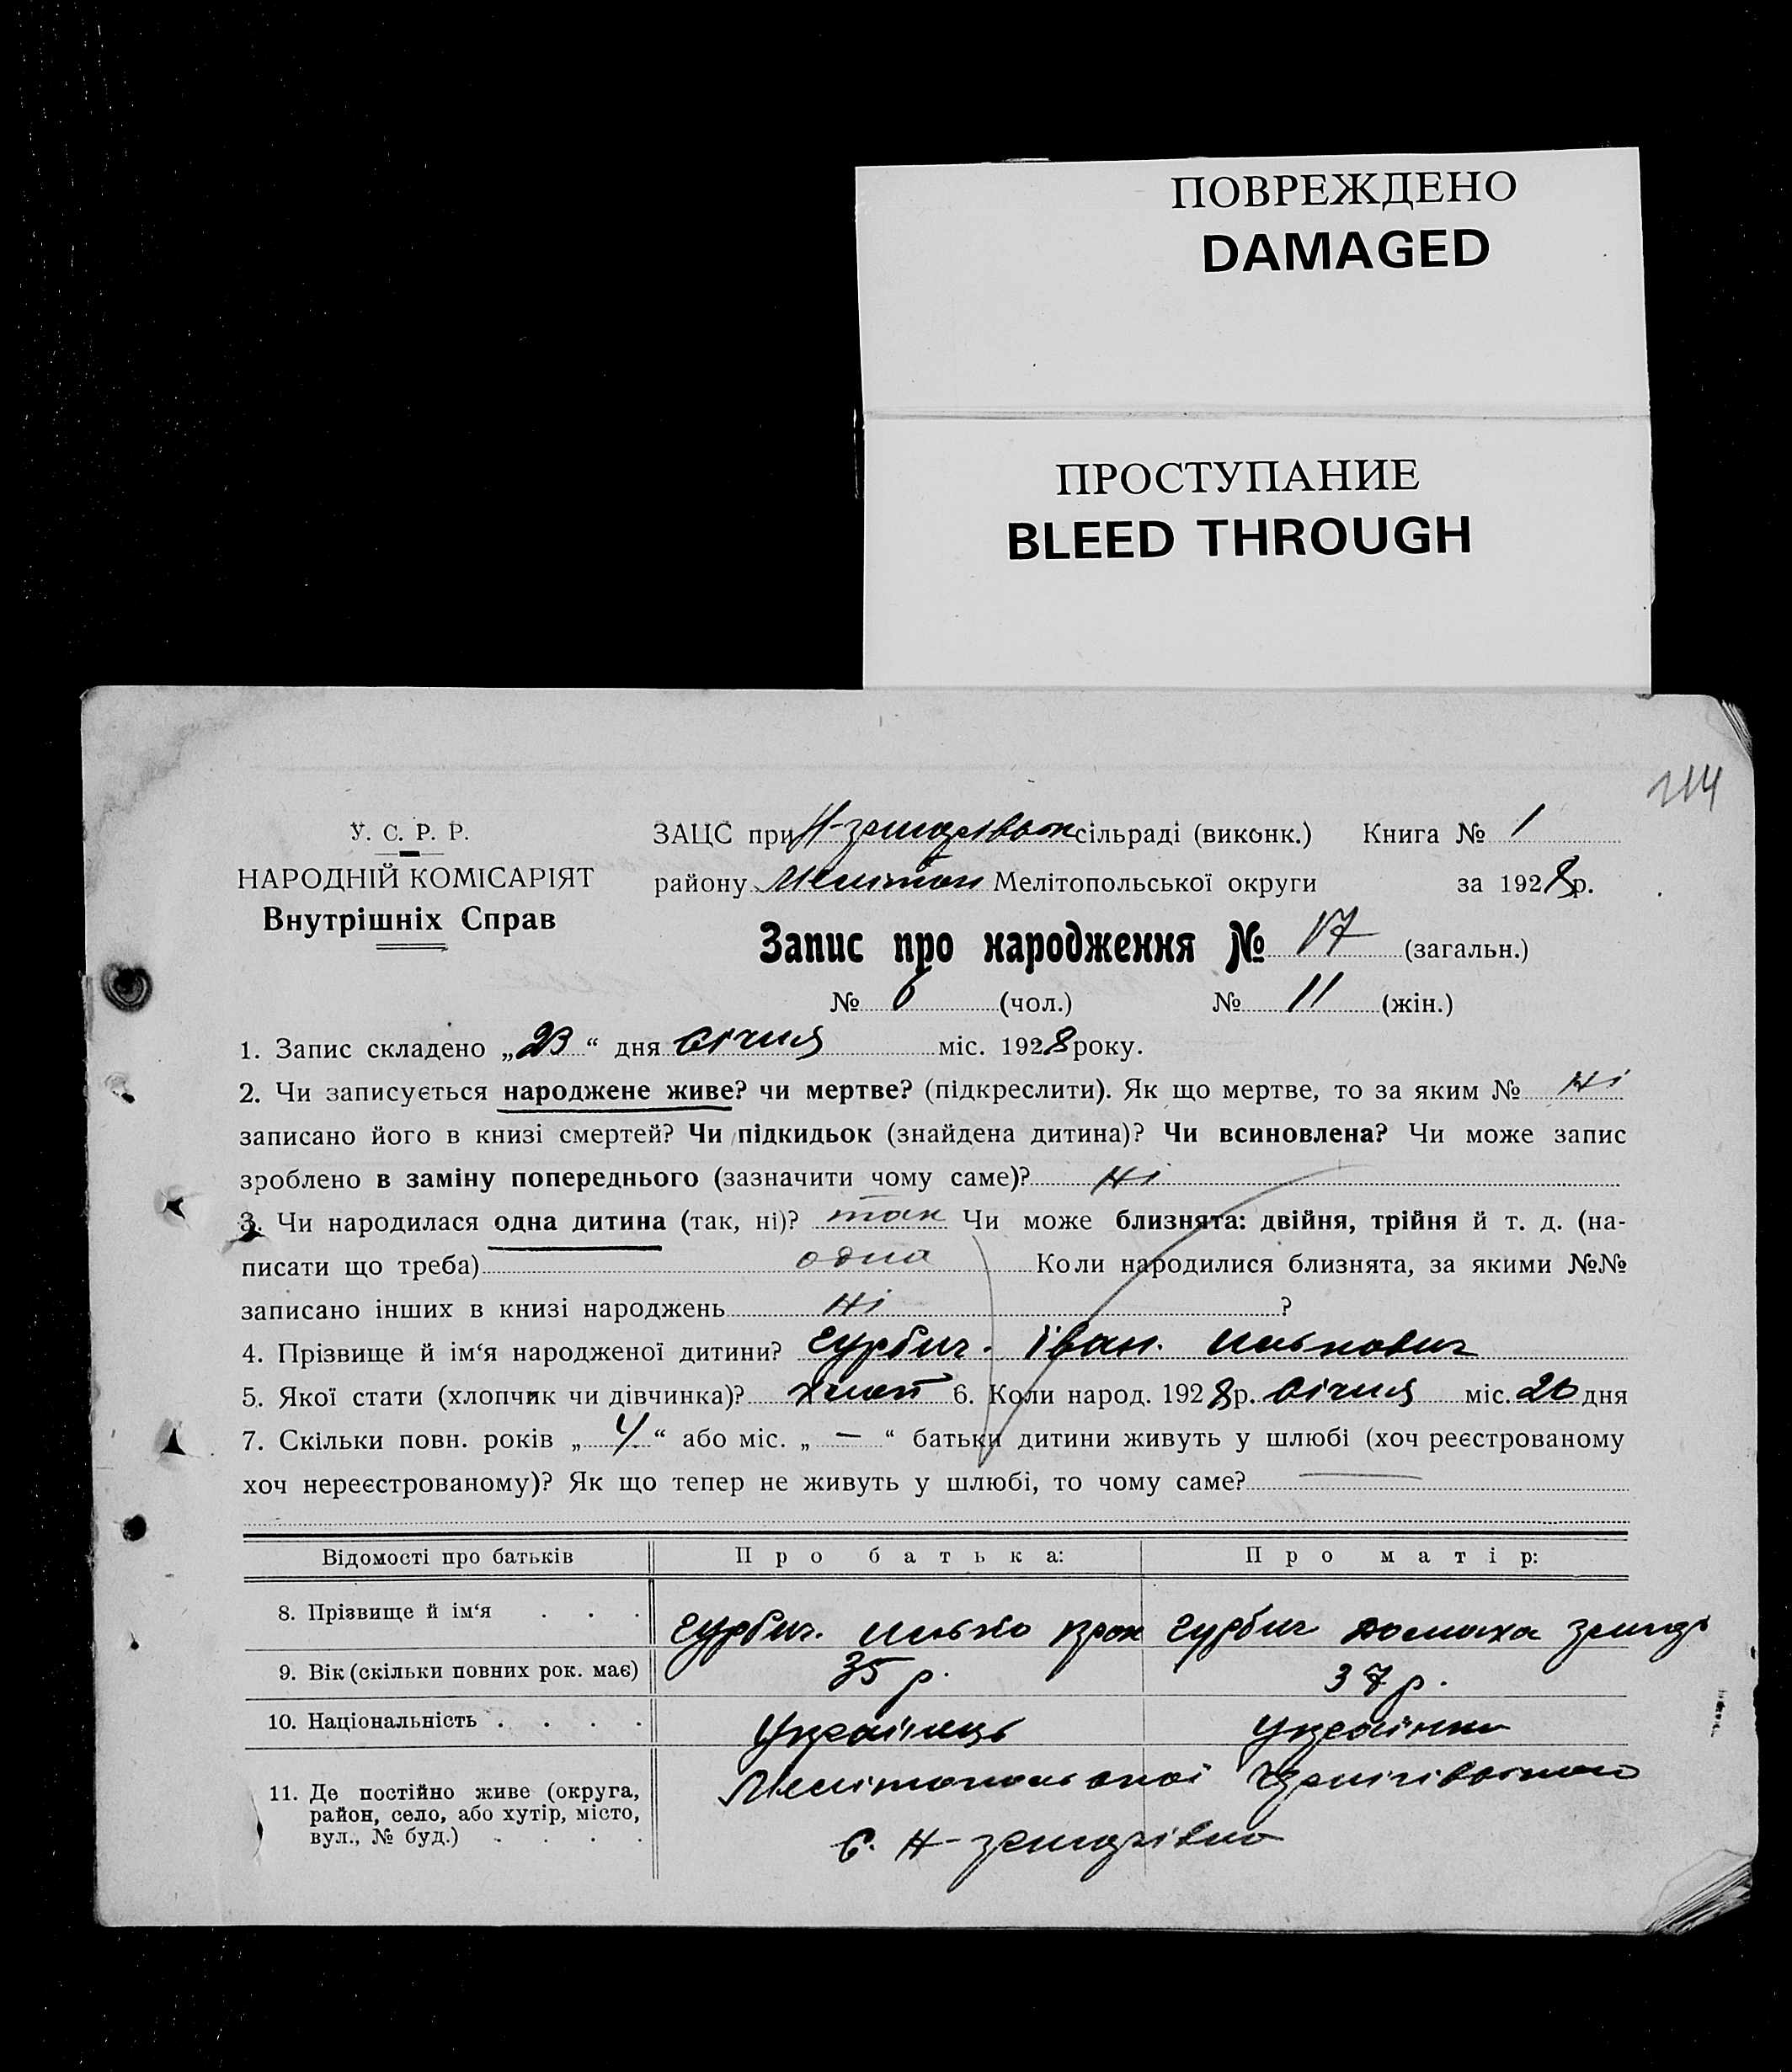 ПОВРЕЖДЕНО
DAMAGED
ПРОСТУПАНИЕ
BLEED THROUGH
У. С. Р. Р.
НАРОДНІЙ КОМІСАРІЯТ
Внутрішніх Справ
ЗАЦС при сільраді (виконк.) Книга № 1
району Мелітоп Мелітопольської округи за 1928р.
Запис про народження № 17 (загальн.)
№ 6 (чол.) № 11 (жін.)
1. Запис складено „23“ дня січня міс. 1928 року.
2. Чи записується народжене живе? чи мертве? (підкреслити). Як що мертве, то за яким № Ні
записано його в книзі смертей? Чи підкидьок (знайдена дитина)? Чи всиновлена? Чи може запис
зроблено в заміну попереднього (зазначити чому саме)? Ні
3. Чи народилася одна дитина (так, ні)? так Чи може близнята: двійня, трійня й т. д. (на-
писати що треба) одна Коли народилися близнята, за якими №№
записано інших в книзі народжень Ні ?
4. Прізвище й ім‘я народженої дитини? Іван.
5. Якої стати (хлопчик чи дівчинка)? хлоп 6. Коли народ. 1928р. січня міс. 20 дня
7. Скільки повн. років „4“ або міс. „—“ батьки дитини живуть у шлюбі (хоч реєстрованому
хоч нереєстрованому)? Як що тепер не живуть у шлюбі, то чому саме? —
Відомості про батьків Про батька: Про матір:
8. Прізвище й ім‘я . . . Домаха
9. Вік (скільки повних рок. має) 35 р. 37 р.
10. Національність . . . . Українець Українка
11. Де постійно живе (округа,
район, село, або хутір, місто,
вул., № буд.) . . . .
Мелітопольської
с. Н-